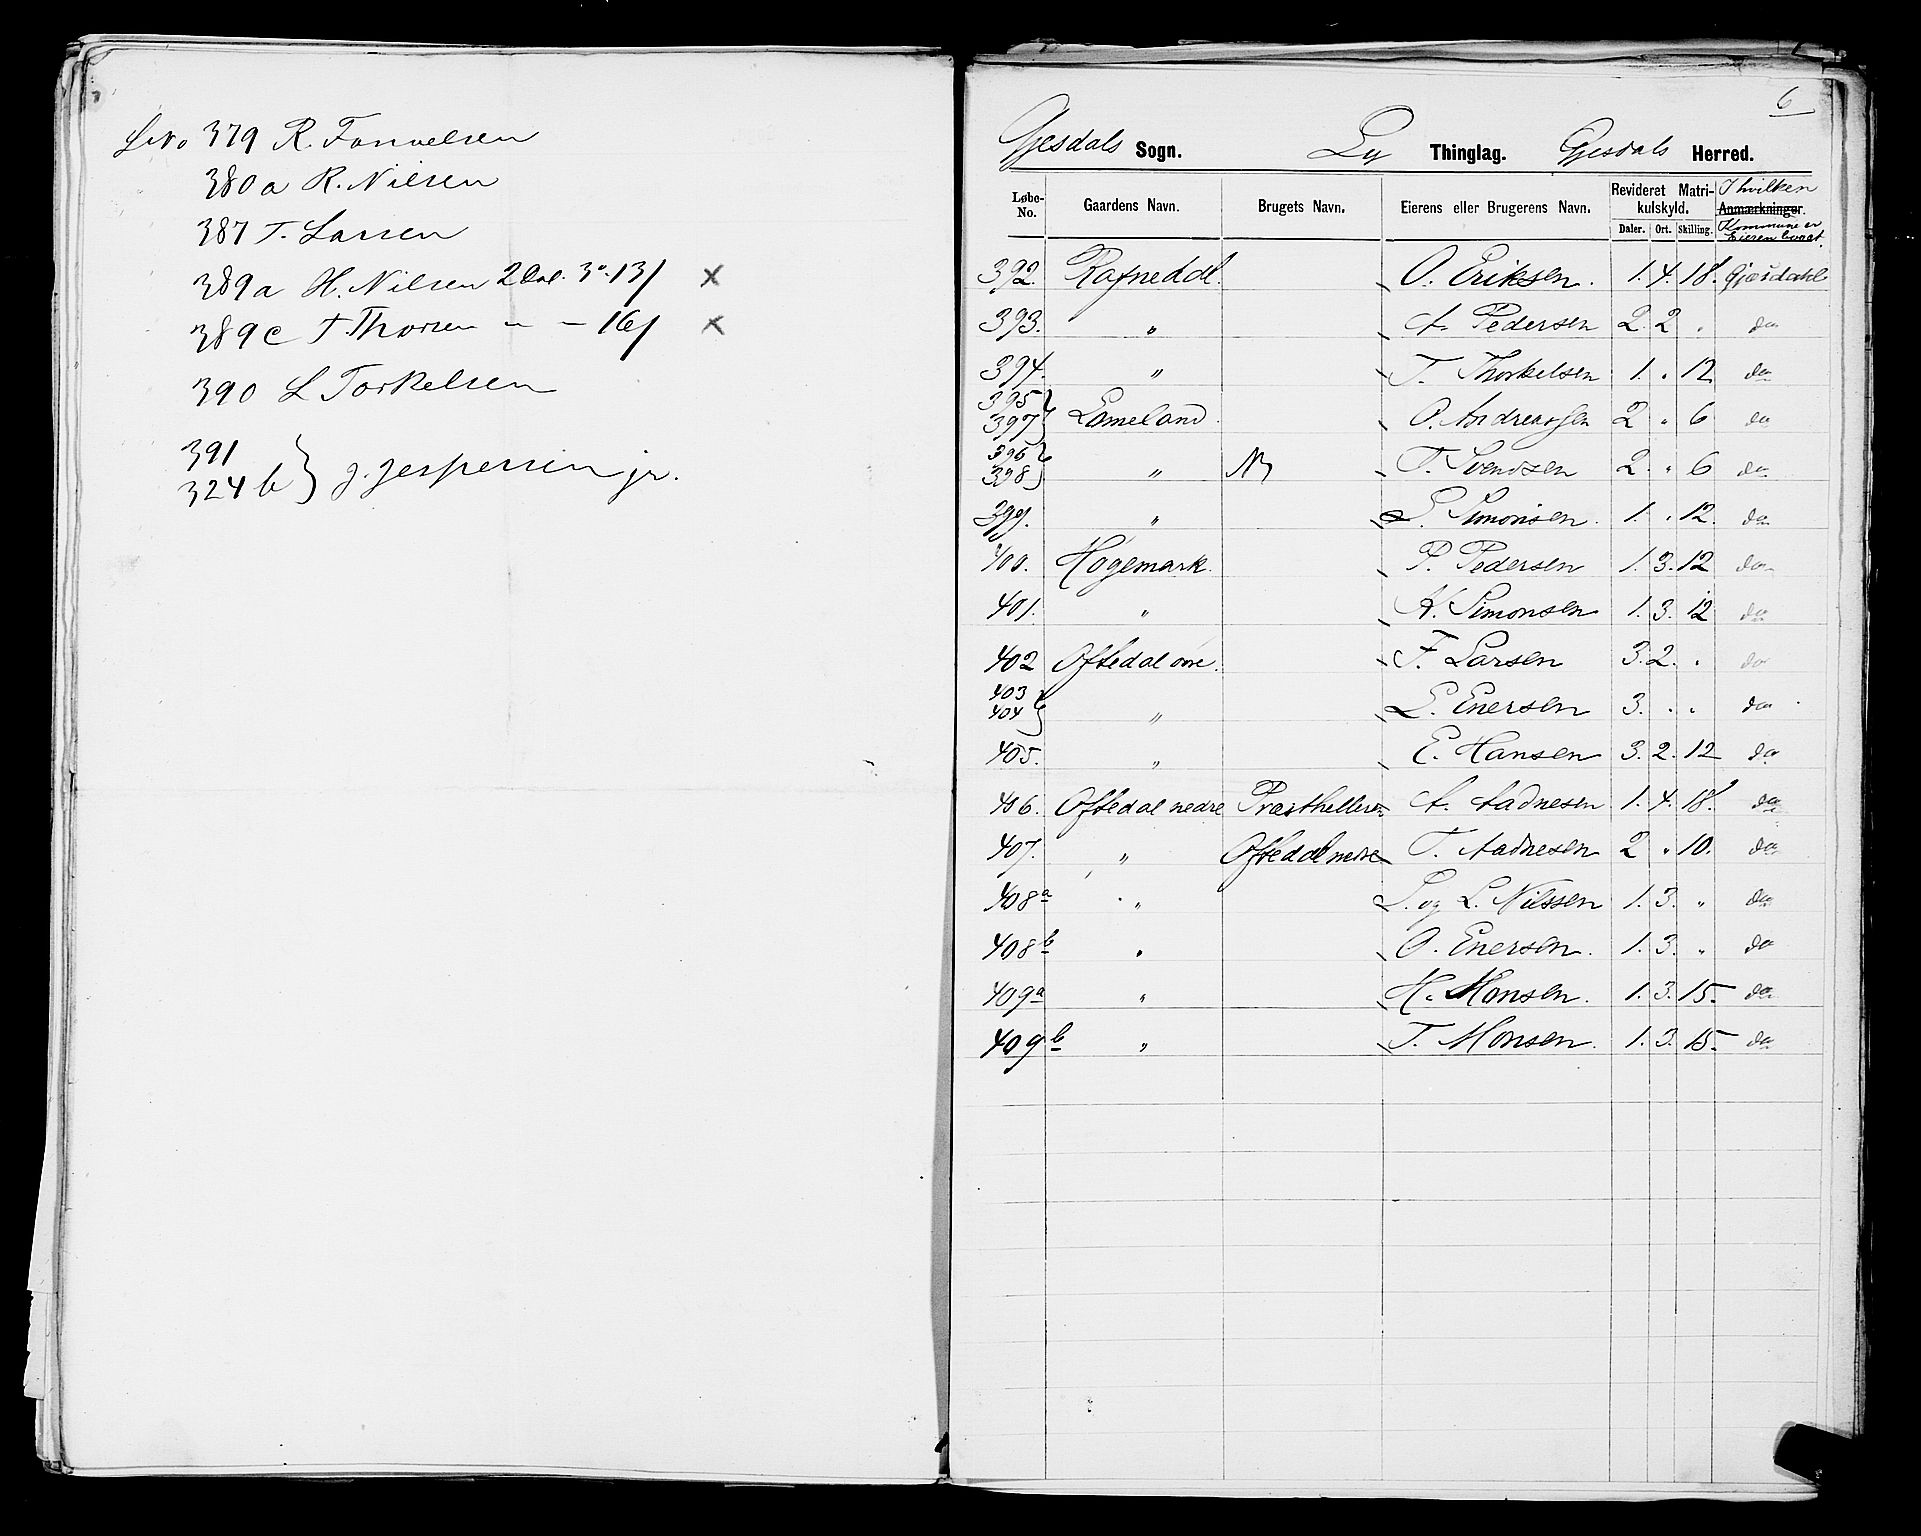 LNo 379 R. Tønnelsen
380a R. Nilsen
387 T. Larsen
389a H. Nilsen 2 Dal. 3 o. 13 /
389c T. Thorsen " – 16 /
390 L Torkelsen
391
324 b } J. Jespersen jr.
6
Gjesdals Sogn. Ly Thinglag. Gjesdals Herred.
Løbe-No. Gaardens Navn. Brugets Navn. Eierens eller Brugerens Navn. Revideret Matrikulskyld. Daler. Ort. Skilling. Anmærkninger. I hvilken Kommune er Eieren boeat.
392. Ragnedal. O. Eriksen. 1. 4. 18. Gjæsdahl
393. " A. Pedersen 2. 2 " do
394. " T. Thorkelsen 1. " 12 do
395 397 } Lomeland. O. Andreassen 2 " 6 do
396 398 } " N T. Svendsen 2. " 6 do
399. " S. Simonsen. 1. " 12. do
400. Høgemark. P. Pedersen 1. 3. 12 do
401. " A. Simonsen 1. 3. 12 do
402 Oftedal øvre. T. Larsen 3. 2. " do
403 404 } " L. Enersen 3. " " do
405. " E. Hansen 3. 2. 12 do
406. Oftedal nedre Præsthelleren A. Aadnesen 1. 4. 18. do
407. " Oftedal nedre T. Aadnesen 2 " 10. do
408a " S. og L. Nilssen 1. 3. " do
408b " O. Enersen. 1. 3. " do
409a " H. Monsen. 1. 3. 15. do
409b " T. Monsen. 1. 3. 15. do